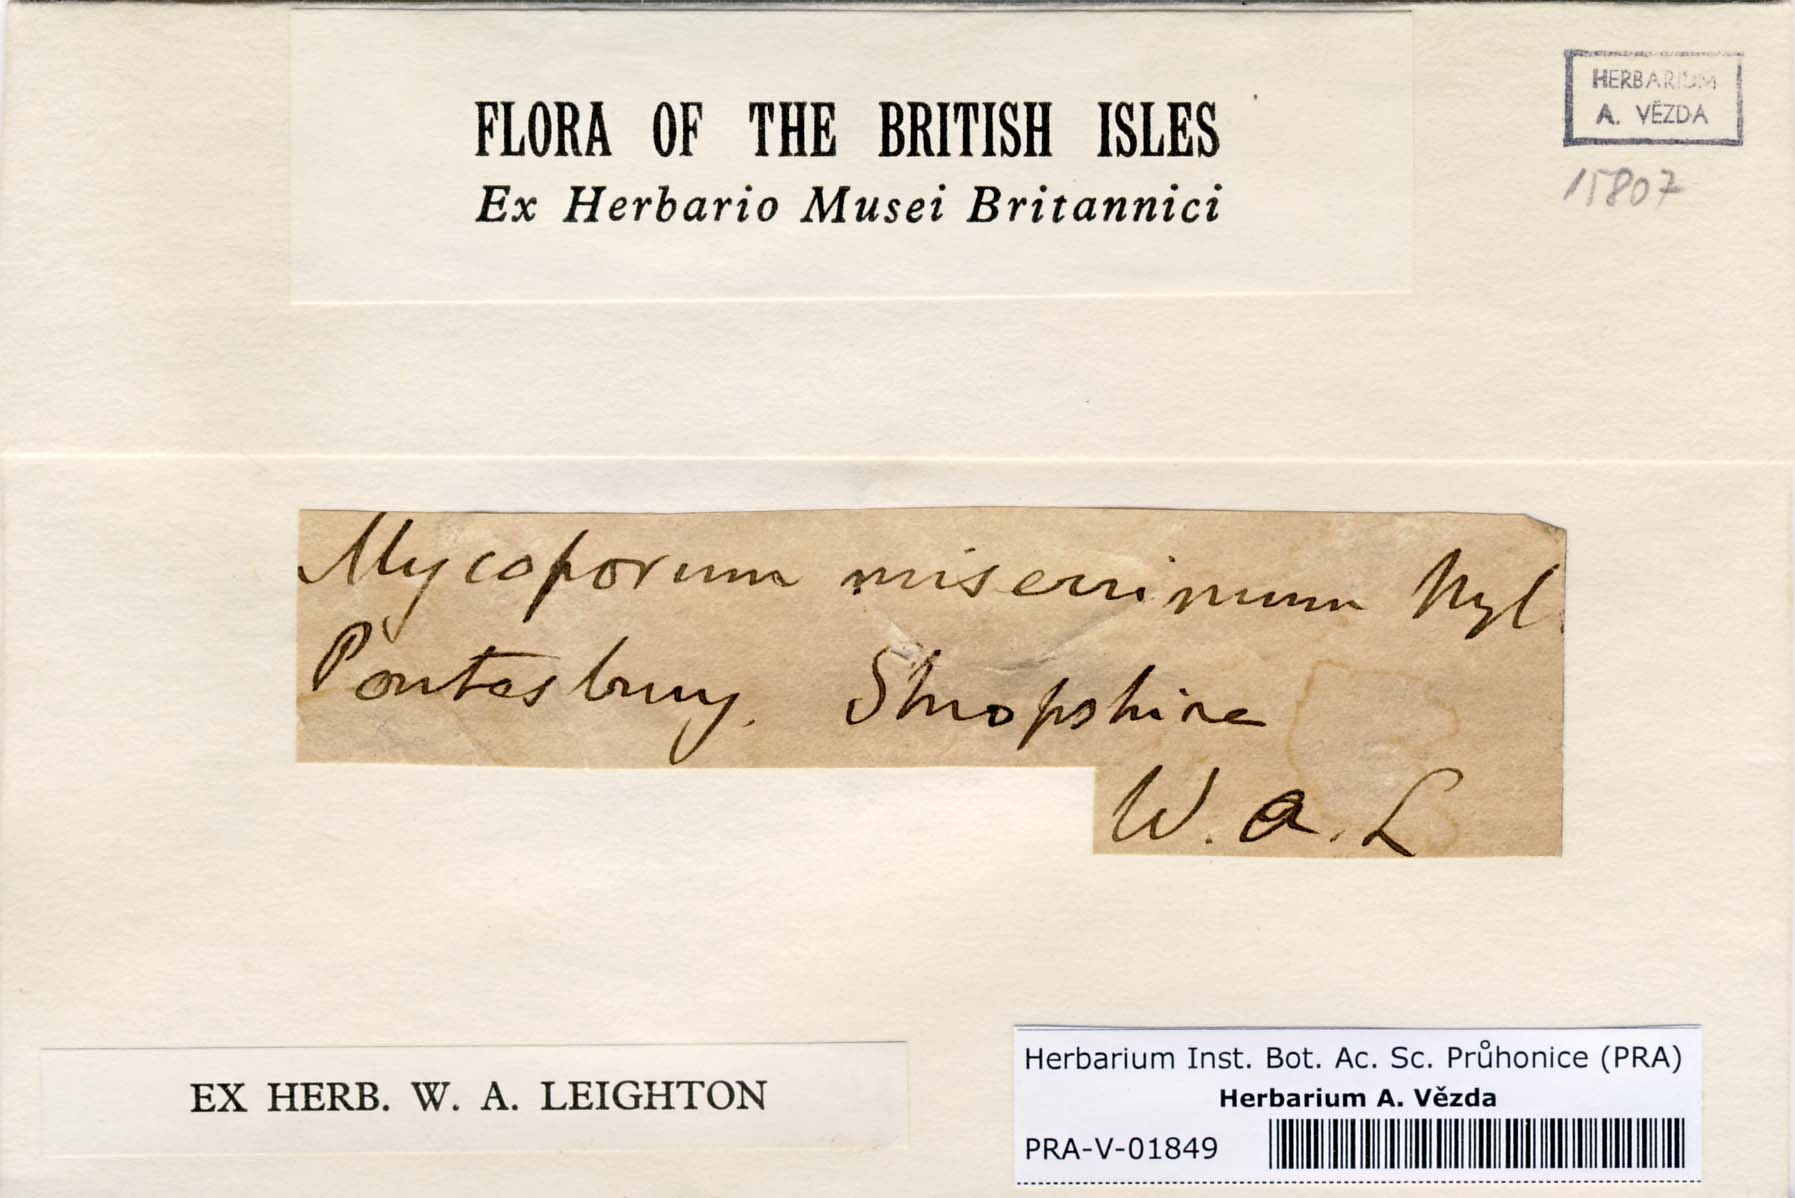 FLORA OF THE BRITISH ISLES
Ex Herbario Musei Britannici
HERBARIUM
A. VĚZDA
15807
Mycoporum miserrimum Nyl.
Pontesbury. Shropshire
W. A. L
EX HERB. W. A. LEIGHTON
Herbarium Inst. Bot. Ac. Sc. Průhonice (PRA)
Herbarium A. Vězda
PRA-V-01849